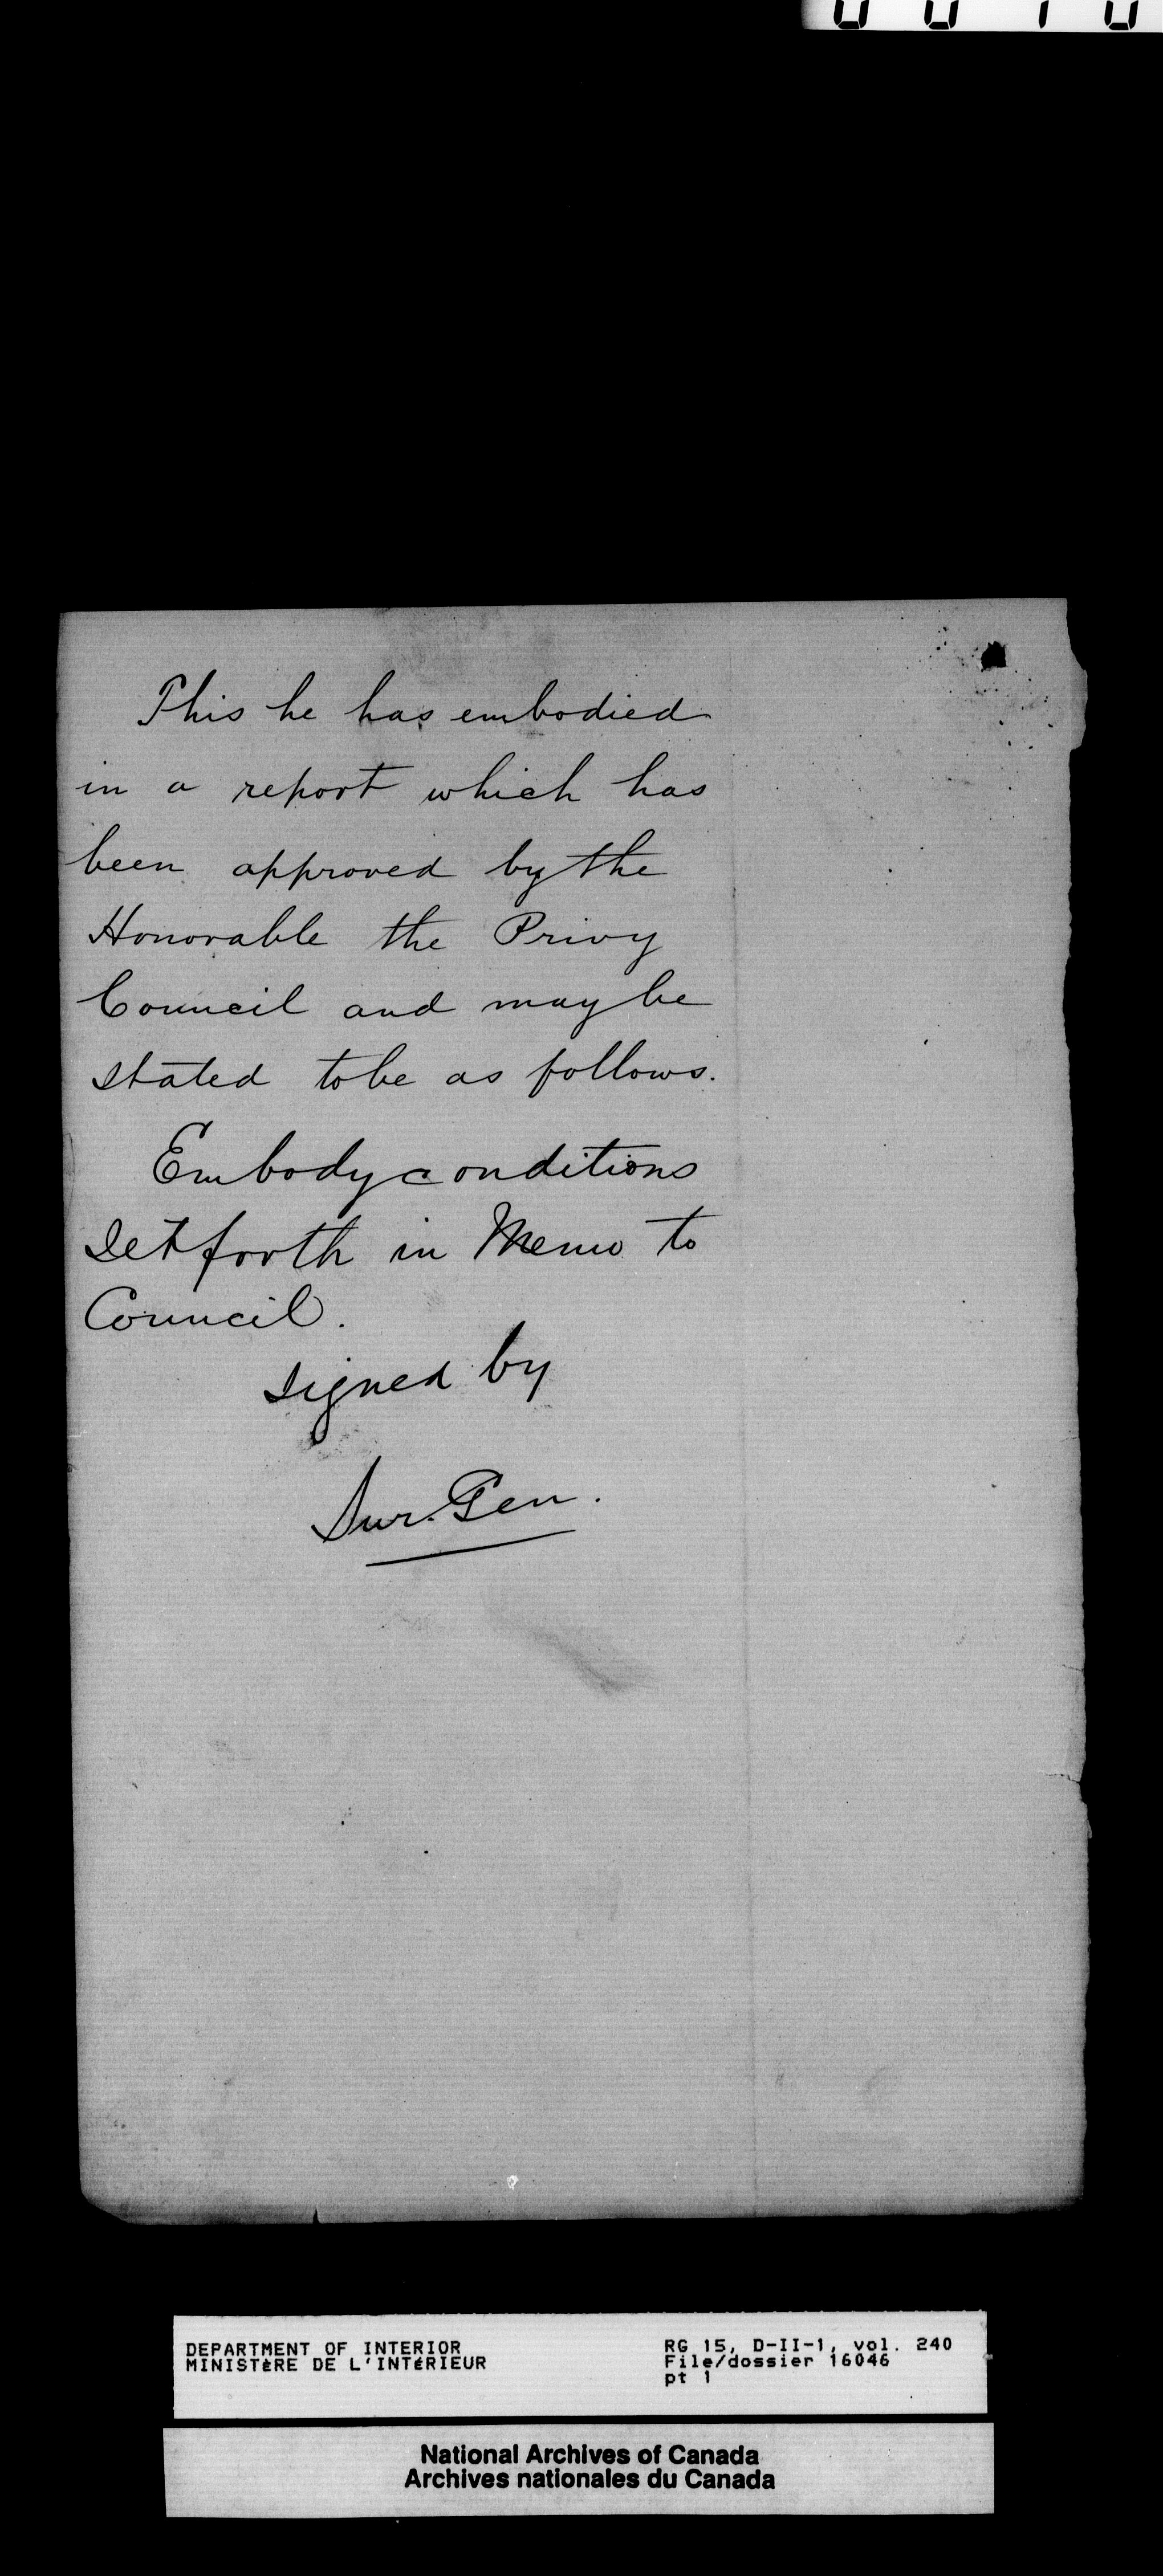 This he has embodied
in a report which has
been approved by the
Honorable the Privy
Council and may be
stated to be as follows.
Embody conditions
set forth in Memo to
Council.
signed by
Sur. Gen.
DEPARTMENT OF INTERIOR
MINISTèRE DE L'INTéRIEUR
RG 15, D-II-1, vol. 240
File/dossier 16046
pt 1
National Archives of Canada
Archives nationales du Canada